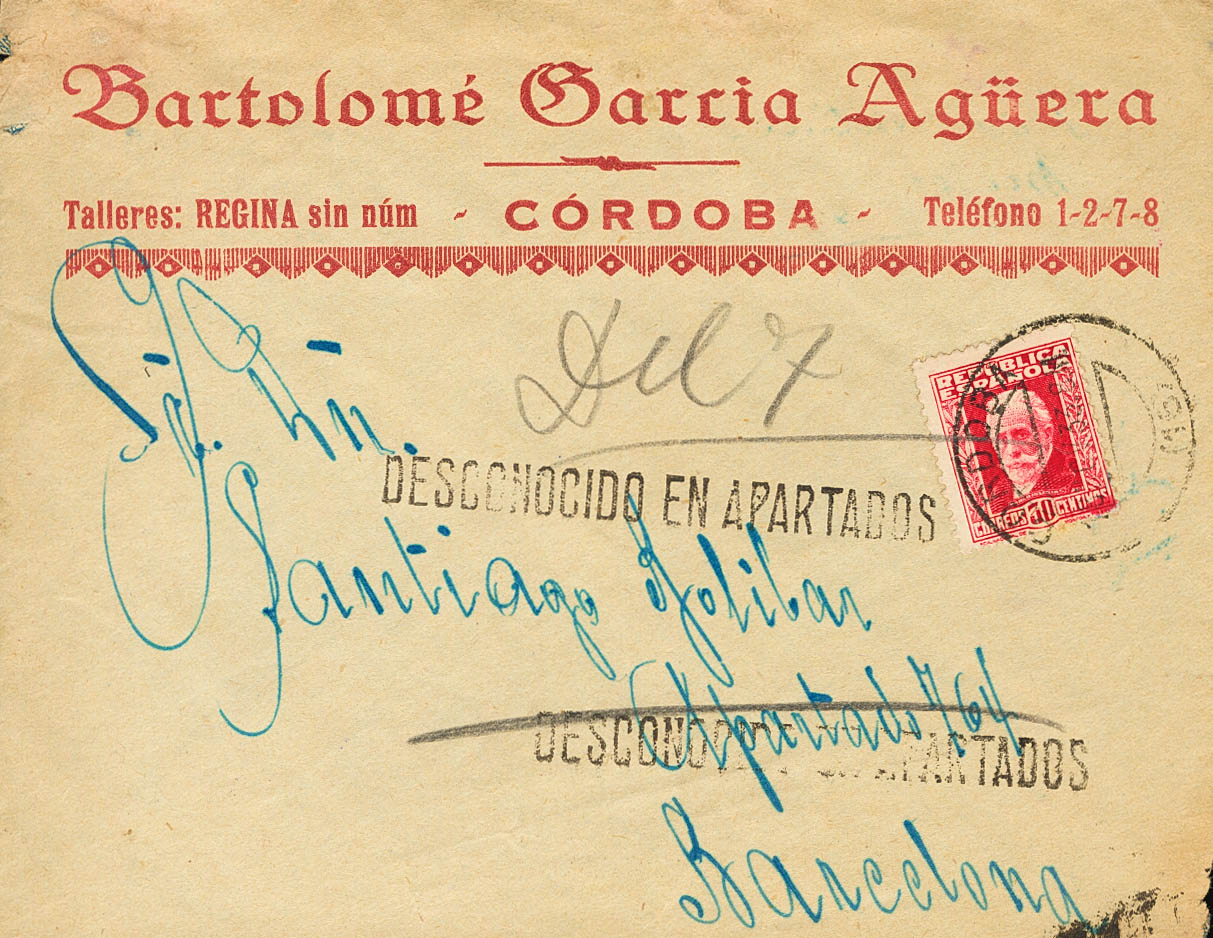 Bartolomé Garcia Agüera
Talleres: REGINA sin núm - CÓRDOBA - Teléfono 1-2-7-8
Sr. Dn.
REPUBLICA
ESPAÑOLA
CORREOS 30 CENTIMOS
CORDOBA
DESCONOCIDO EN APARTADOS
Santiago Golibar
Apartado 764
DESCONOCIDO EN APARTADOS
Barcelona